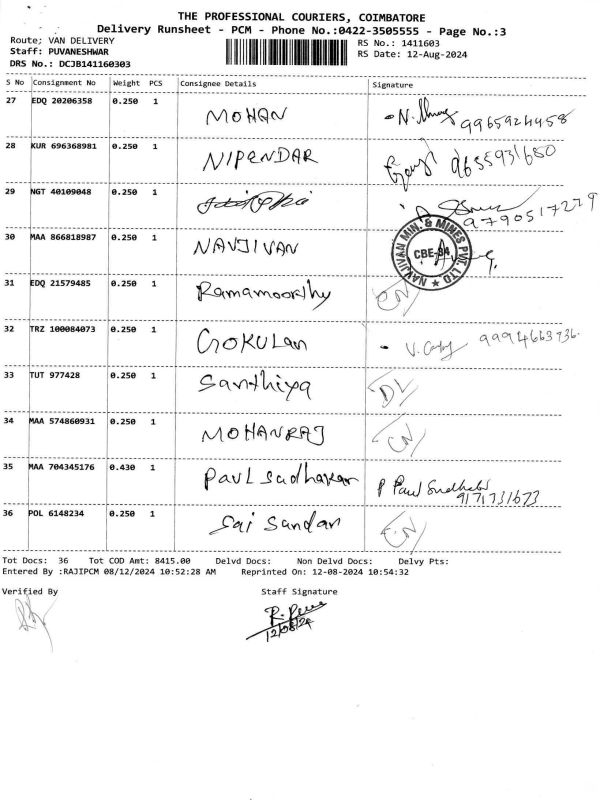 THE PROFESSIONAL COURIERS, COIMBATORE
Delivery Runsheet - PCM - Phone No.:0422-3505555 - Page No.:3
Route; VAN DELIVERY
Staff: PUVANESHWAR
DRS No.: DCJB141160303
RS No.: 1411603
RS Date: 12-Aug-2024
S No Consignment No Weight PCS Consignee Details Signature
27 EDQ 20206358 0.250 1 MOHAN 9965924458
28 KUR 696368981 0.250 1 NIPENDAR 9655931680
29 NGT 40109048 0.250 1 9790517279
30 MAA 866818987 0.250 1 NAVJIVAN
NAVJIVAN MIN. & MINES PVT. LTD
CBE-34
31 EDQ 21579485 0.250 1 Ramamoorthy CN
32 TRZ 100084073 0.250 1 GOKULan 9994663736
33 TUT 977428 0.250 1 Santhiya DL
34 MAA 574860931 0.250 1 MOHANRAJ CN
35 MAA 704345176 0.430 1 Paul Sudhakar P Paul Sudhakar
9171731673
36 POL 6148234 0.250 1 Sai Sandar CN
Tot Docs: 36 Tot COD Amt: 8415.00 Delvd Docs: Non Delvd Docs: Delvy Pts:
Entered By :RAJIPCM 08/12/2024 10:52:28 AM Reprinted On: 12-08-2024 10:54:32
Verified By Staff Signature
12/08/24